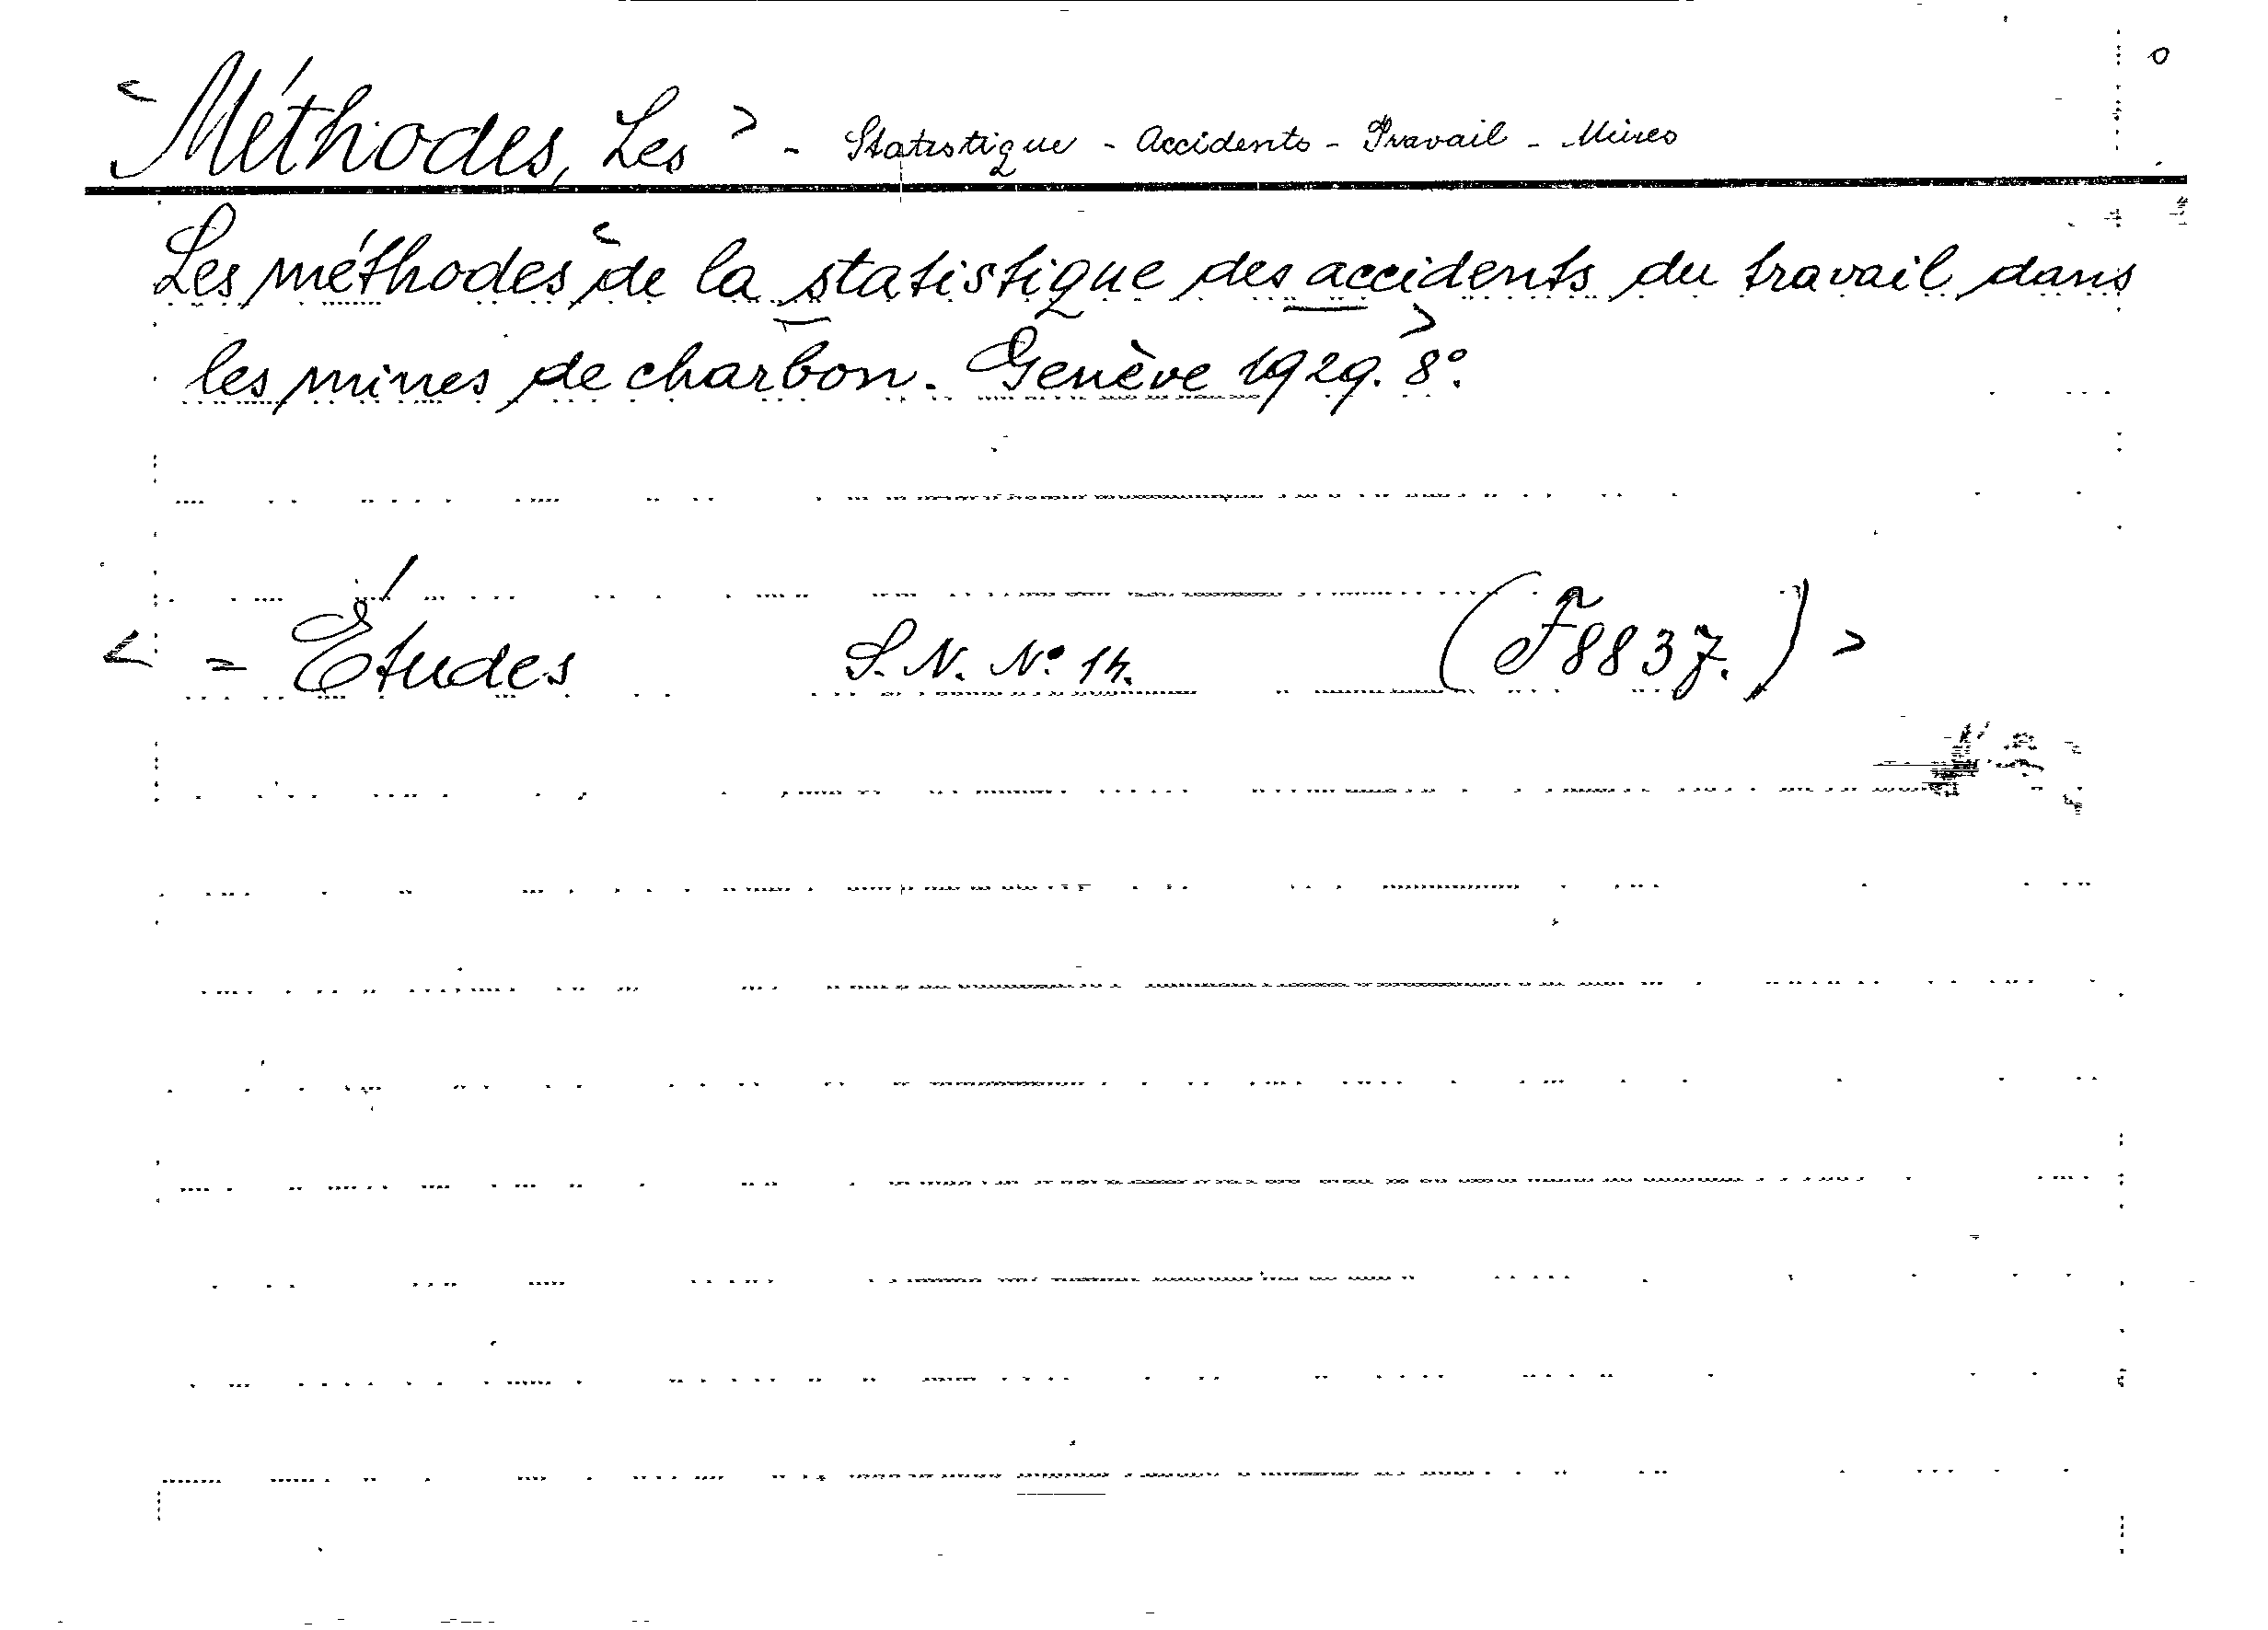 <Méthodes, Les> - Statistique - Accidents - Travail - Mines
Les méthodes < de la statistique des accidents du travail dans
les mines de charbon. Genève 1929. > 8°.
< = Études S. N. No. 14. (F 8837.) >